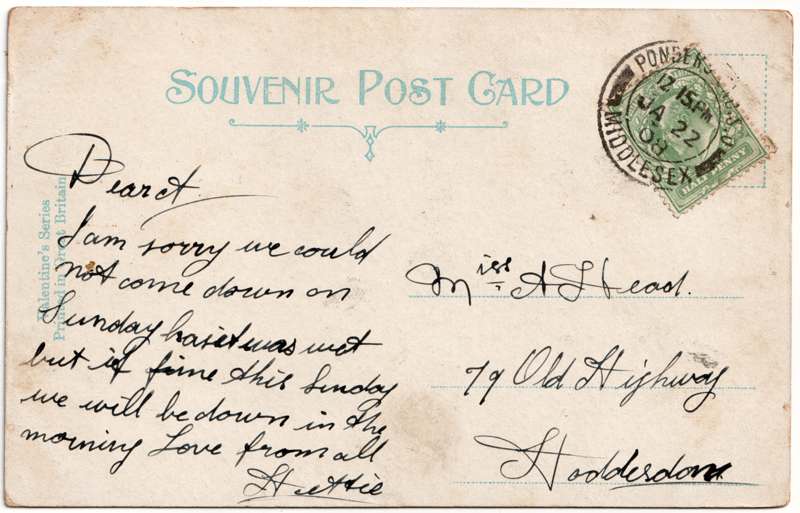 SOUVENIR POST CARD
PONDERS
12.15 PM
JA 22
08
MIDDLESEX
HALFPENNY
Valentine's Series
Printed in Great Britain
Dear A
I am sorry we could
not come down on
Sunday has it was wet
but if fine this Sunday
we will be down in the
morning Love from all
Hettie
Miss A Head.
79 Old Highway
Hoddesdon